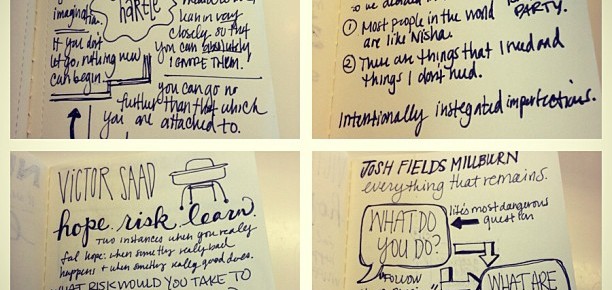 imagination
HARTLE
If you don't
let go, nothing new
can begin
learn very
closely so that
you can absolutely
IGNORE THEM.
you can go no
further than that which
you are attached to.
PARTY.
① Most people in the world
are like Nisha.
② There are things that I need and
things I don't need.
Intentionally instegated imperfections.
VICTOR SAAD
hope. risk. learn.
Two instances when you really
feel hope: when something really bad
happens + when something really good does.
WHAT RISK WOULD YOU TAKE TO
JOSH FIELDS MILLBURN
everything that remains.
WHAT DO
YOU DO?
life's most dangerous
question
FOLLOW
WHAT ARE